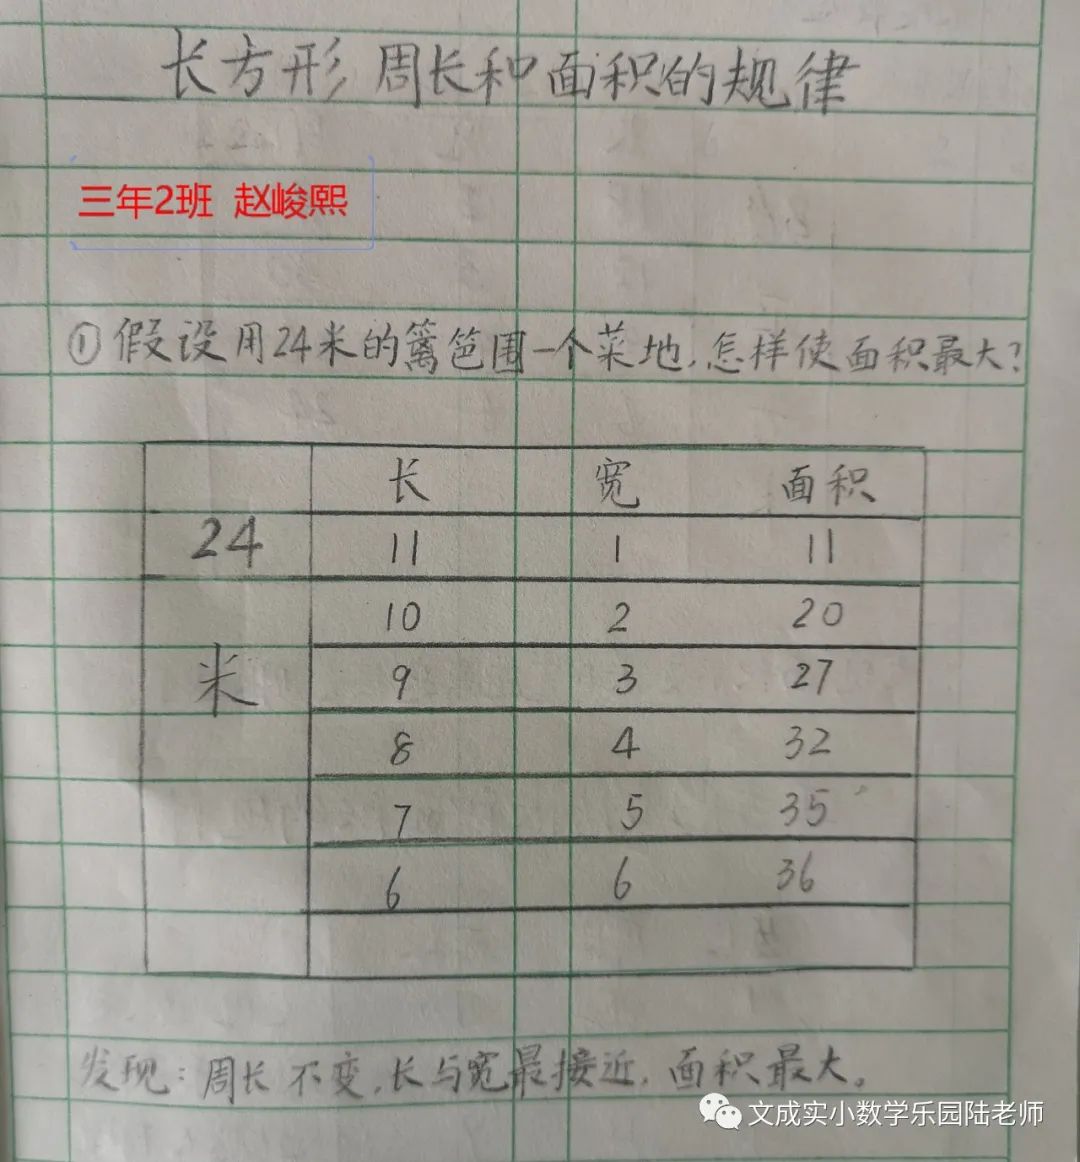 长方形 周长和面积的规律
三年2班 赵峻熙
①假设用24米的篱笆围一个菜地,怎样使面积最大?
长 宽 面积
24 11 1 11
10 2 20
米 9 3 27
8 4 32
7 5 35
6 6 36
发现:周长不变,长与宽最接近,面积最大。
文成实小数学乐园陆老师